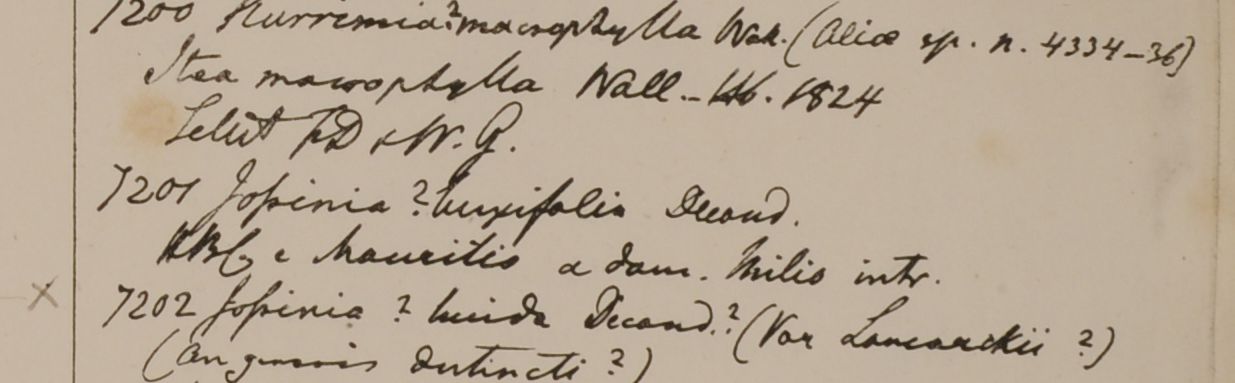 7200 Kurrimia? macrophylla Wall. (Aliae sp. n. 4334-36)
Itea macrophylla Wall. - Hb. 1824
Silhet FD & W. G.
7201 Jossinia? buxifolia Decand.
HBC e Mauritio a dom. Milio intr.
7202 Jossinia? lucida Decand.? (Var Lamarckii?)
(An generis distincti?)